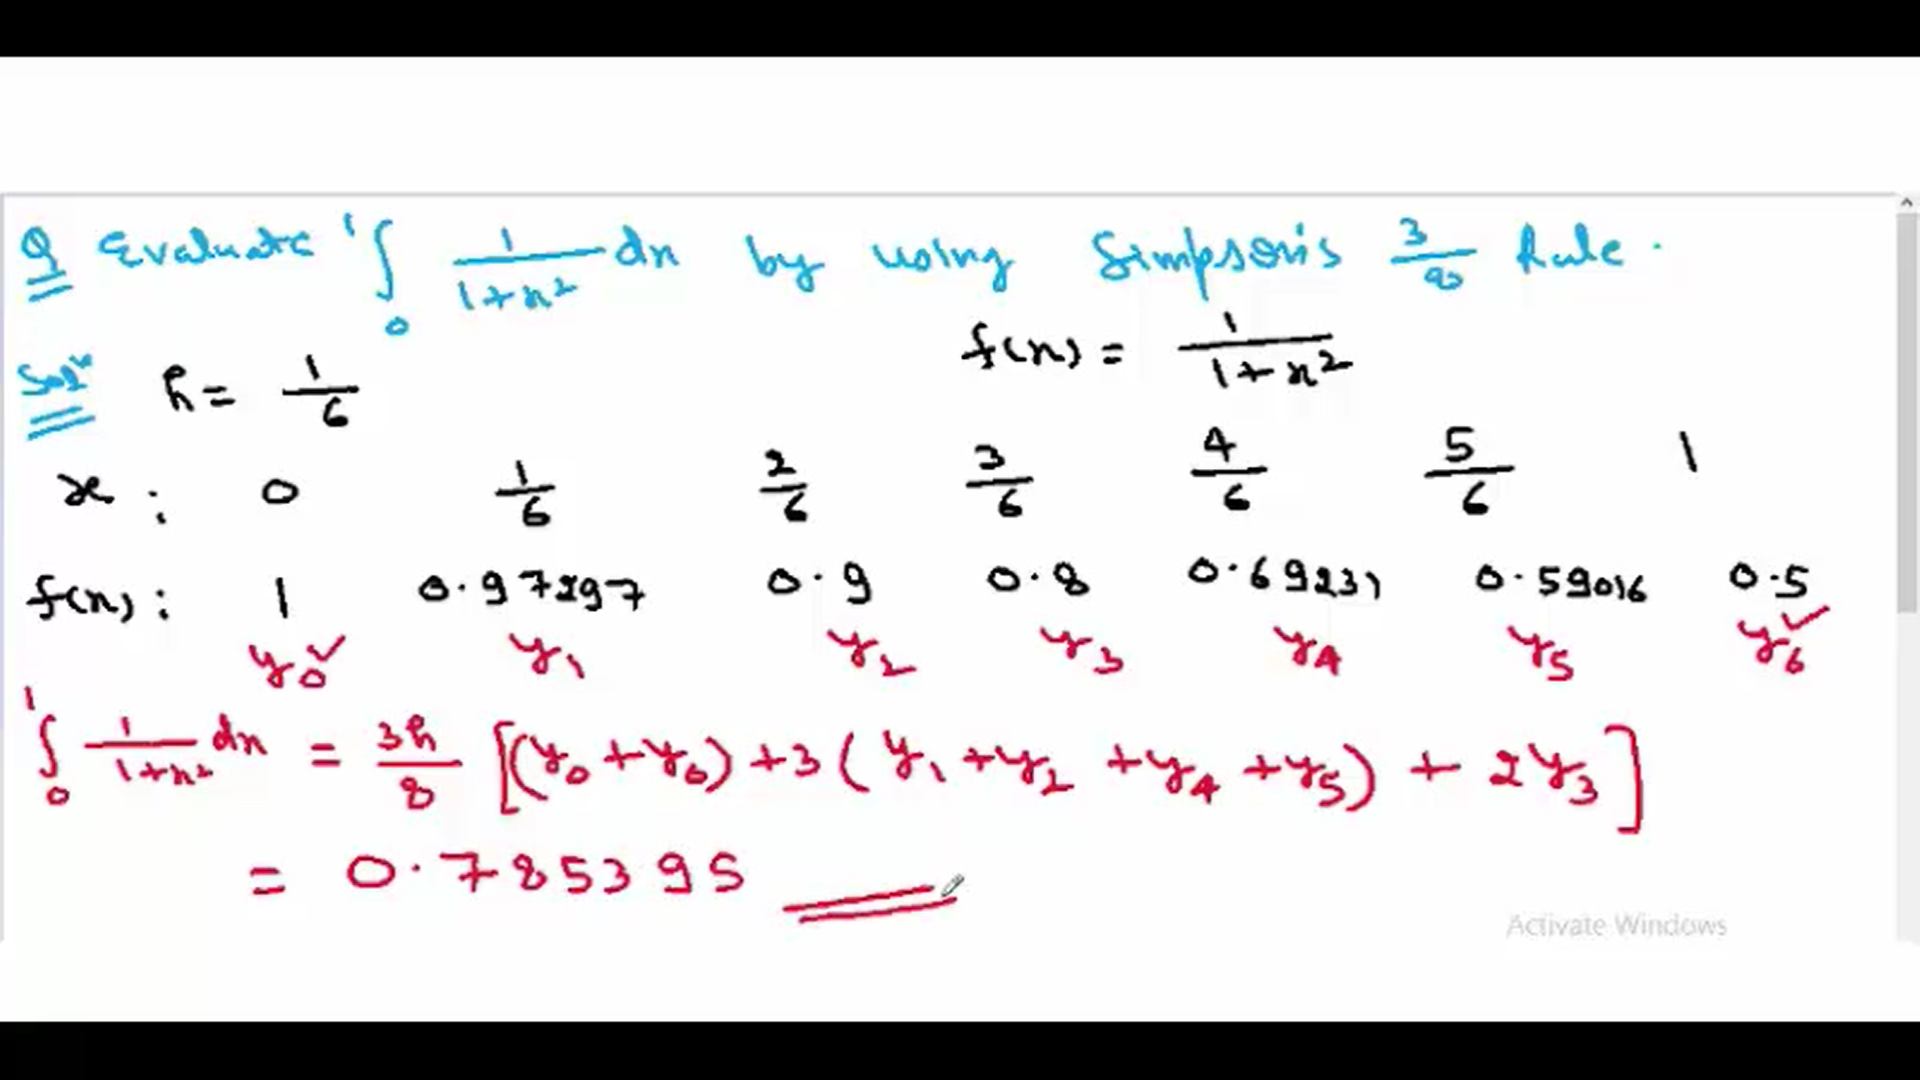 Q Evaluate ∫₀¹ 1/(1+x²) dx by using Simpson's 3/8 Rule.
Solⁿ h = 1/6 f(x) = 1/(1+x²)
x : 0 1/6 2/6 3/6 4/6 5/6 1
f(x) : 1 0.97297 0.9 0.8 0.69231 0.59016 0.5
y₀ ✓ y₁ y₂ y₃ y₄ y₅ y₆ ✓
∫₀¹ 1/(1+x²) dx = 3h/8 [(y₀+y₆)+3(y₁+y₂+y₄+y₅)+2y₃]
= 0.785395
Activate Windows